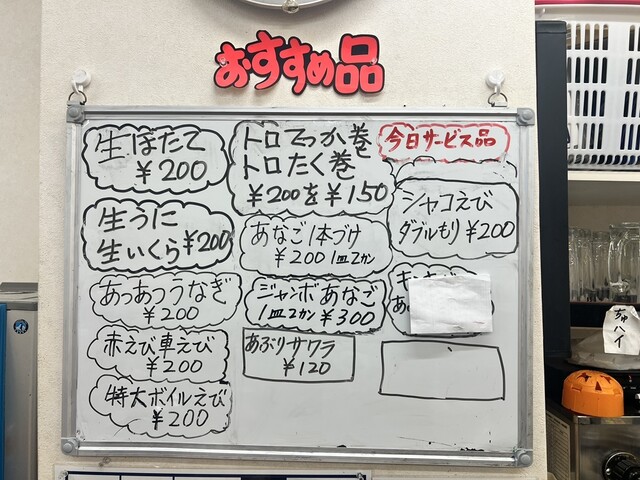 おすすめ品
生ほたて
¥200
生うに
生いくら ¥200
あつあつうなぎ
¥200
赤えび車えび
¥200
特大ボイルえび
¥200
トロてっか巻
トロたく巻
¥200を¥150
あなご1本づけ
¥200 1皿2カン
ジャンボあなご
1皿2カン ¥300
あぶりサワラ
¥120
今日サービス品
シャコえび
ダブルもり ¥200
ちゅ
ハイ